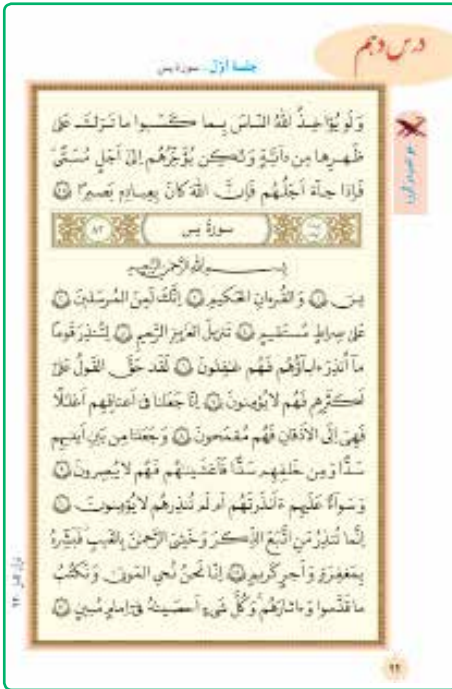 درس دهم
جلسهٔ اوّل: سورهٔ یس
وَ لَو یُؤاخِذُ اللّٰهُ النّاسَ بِما کَسَبوا ما تَرَکَ عَلیٰ
ظَهرِها مِن دابَّةٍ وَ لٰکِن یُؤَخِّرُهُم اِلیٰ اَجَلٍ مُسَمًّی
فَاِذا جاءَ اَجَلُهُم فَاِنَّ اللّٰهَ کانَ بِعِبادِهٖ بَصیرًا ۴۵
سورةُ یس
۸۳
بِسمِ اللّٰهِ الرَّحمٰنِ الرَّحیمِ
یسٓ ۱ وَ القُرءانِ الحَکیمِ ۲ اِنَّکَ لَمِنَ المُرسَلینَ ۳
عَلیٰ صِراطٍ مُستَقیمٍ ۴ تَنزیلَ العَزیزِ الرَّحیمِ ۵ لِتُنذِرَ قَومًا
ما اُنذِرَ ءاباؤُهُم فَهُم غافِلونَ ۶ لَقَد حَقَّ القَولُ عَلیٰ
اَکثَرِهِم فَهُم لا یُؤمِنونَ ۷ اِنّا جَعَلنا فی اَعناقِهِم اَغلالًا
فَهِیَ اِلَی الاَذقانِ فَهُم مُقمَحونَ ۸ وَ جَعَلنا مِن بَینِ اَیدیهِم
سَدًّا وَ مِن خَلفِهِم سَدًّا فَاَغشَیناهُم فَهُم لا یُبصِرونَ ۹
وَ سَواءٌ عَلَیهِم ءَاَنذَرتَهُم اَم لَم تُنذِرهُم لا یُؤمِنونَ ۱۰
اِنَّما تُنذِرُ مَنِ اتَّبَعَ الذِّکرَ وَ خَشِیَ الرَّحمٰنَ بِالغَیبِ فَبَشِّرهُ
بِمَغفِرَةٍ وَ اَجرٍ کَریمٍ ۱۱ اِنّا نَحنُ نُحیِ المَوتیٰ وَ نَکتُبُ
ما قَدَّموا وَ ءاثارَهُم وَ کُلَّ شَیءٍ اَحصَیناهُ فی اِمامٍ مُبینٍ ۱۲